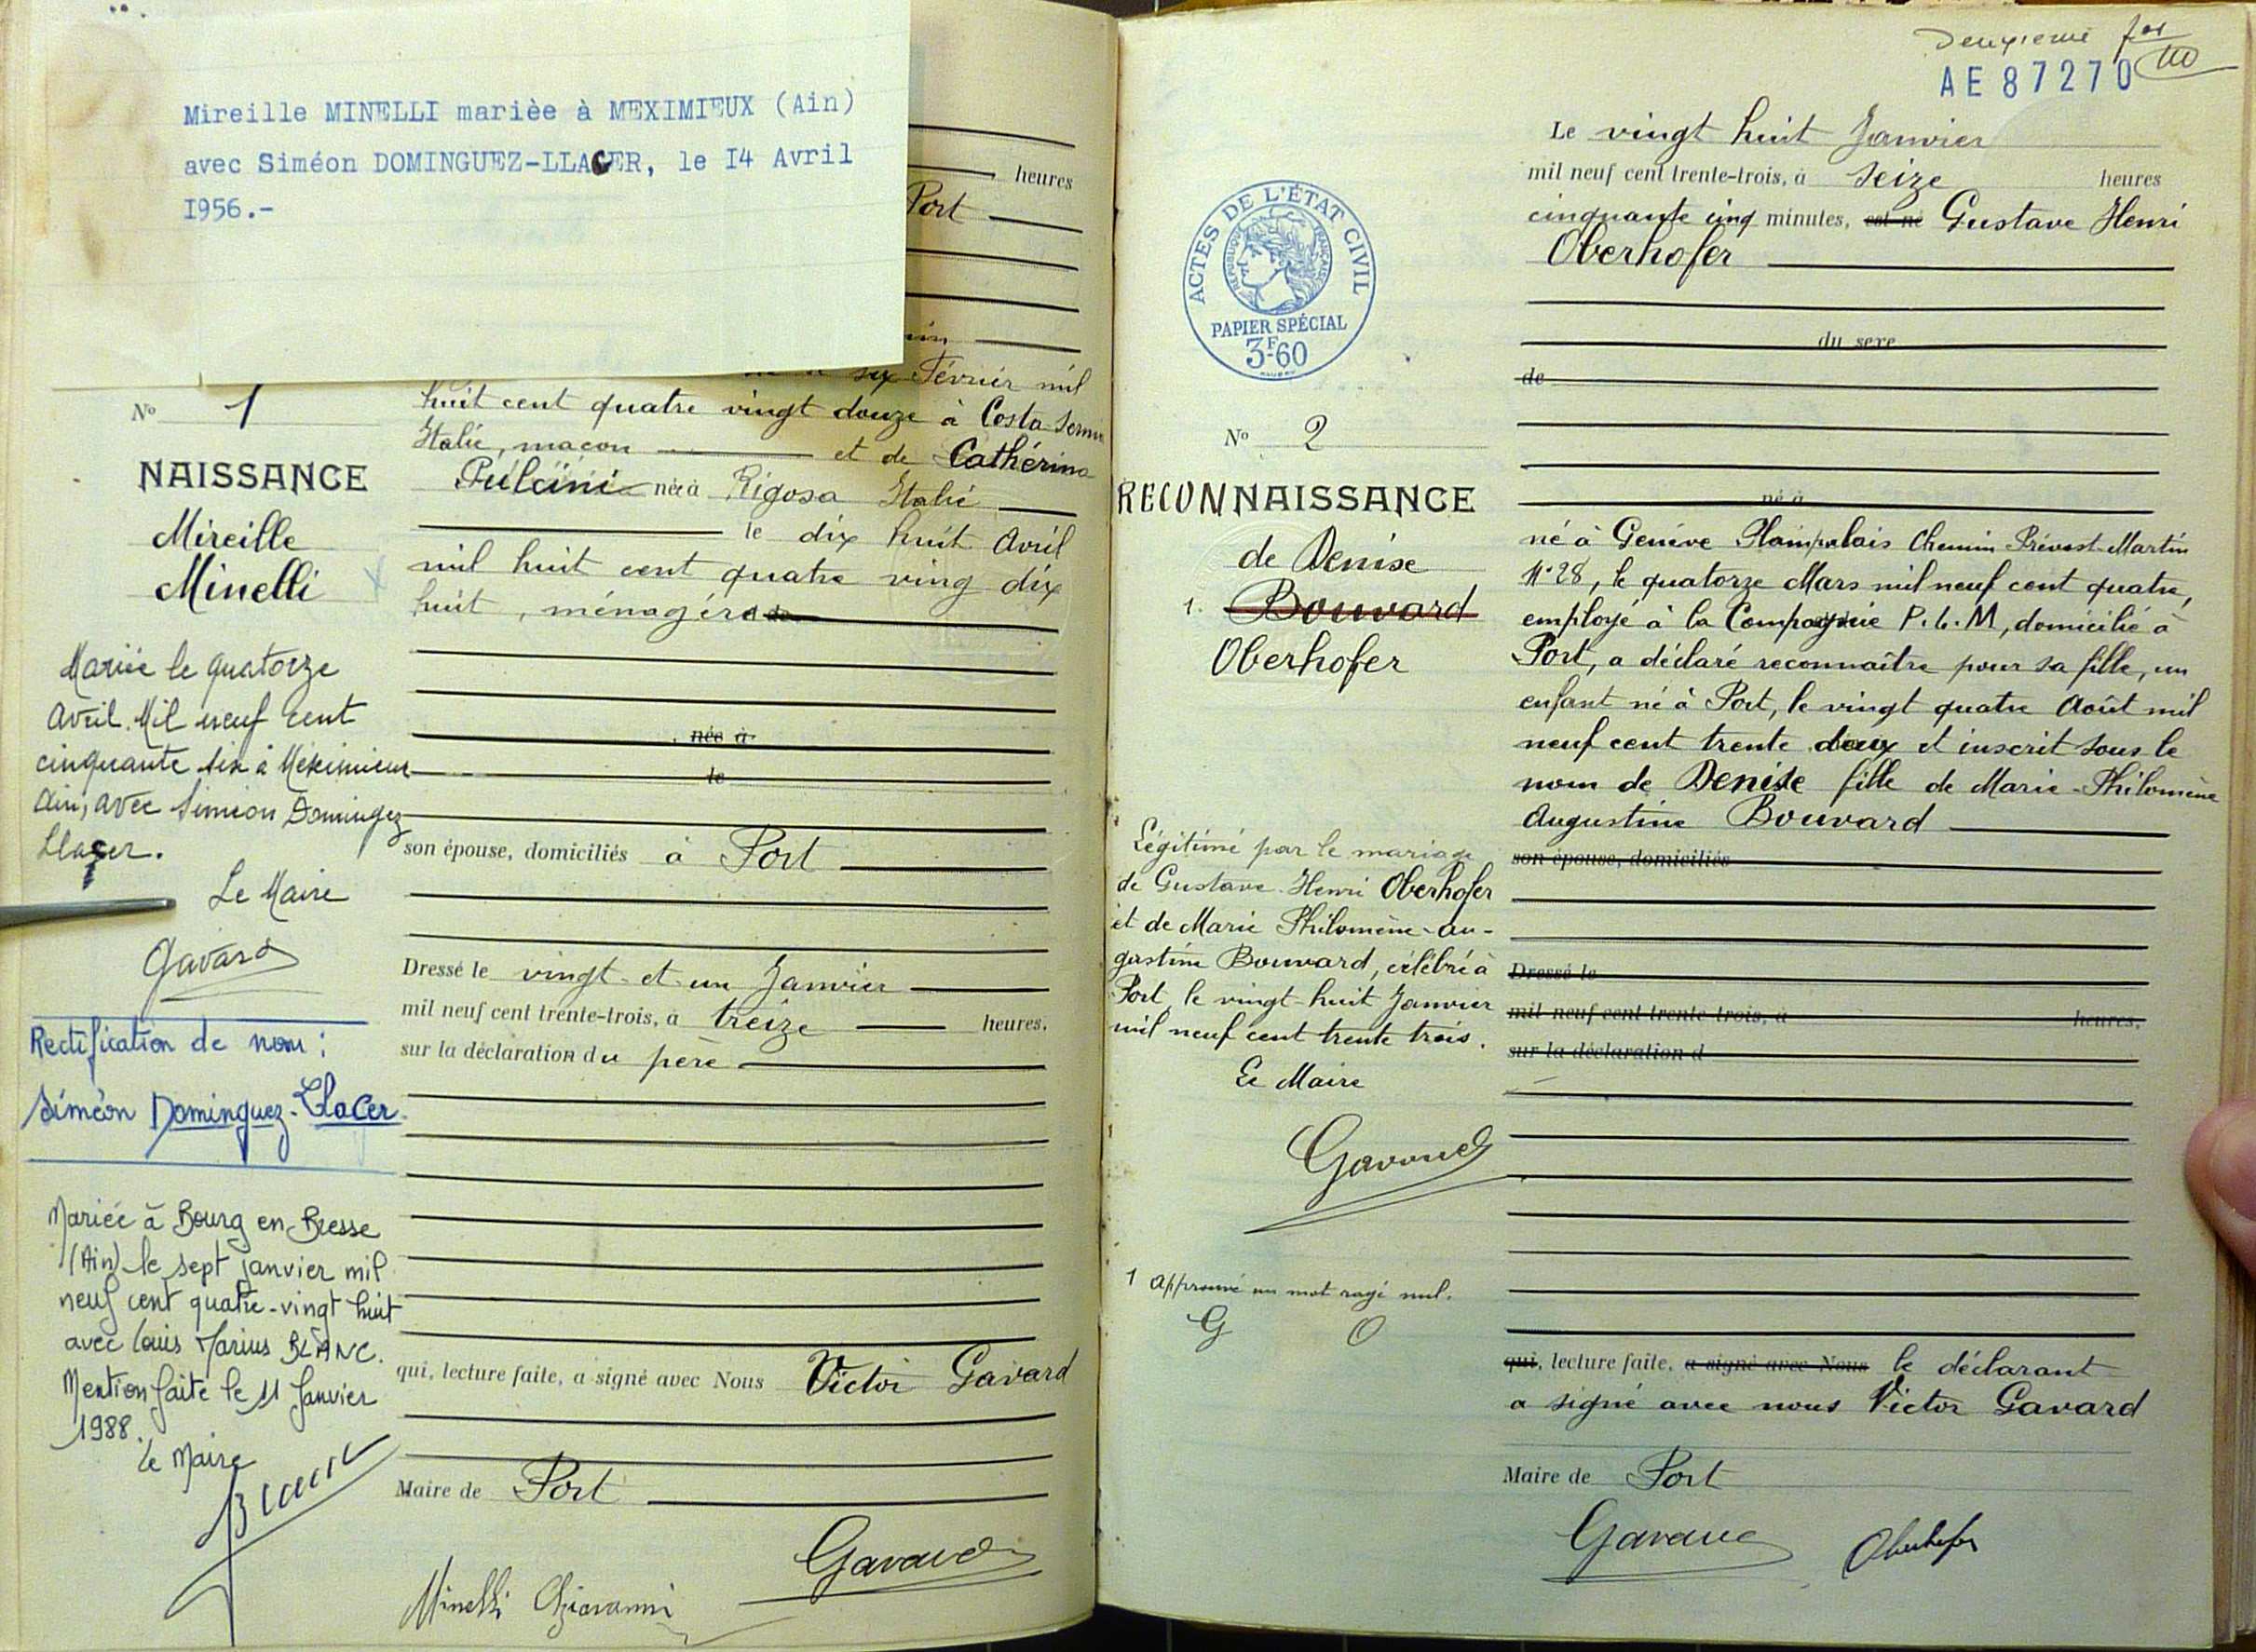 Mireille MINELLI marièe à MEXIMIEUX (Ain)
avec Siméon DOMINGUEZ-LLACER, le I4 Avril
I956.-
heures
Port
six Février mil
huit cent quatre vingt douze à Costa
Italie, maçon et de Cathérina
Pulcini née à Rigosa Italie
le dix huit Avril
mil huit cent quatre ving dix
huit, ménagère
née à
le
son épouse, domiciliés à Port
Dressé le vingt et un Janvier
mil neuf cent trente-trois, à treize heures.
sur la déclaration du père
qui, lecture faite, a signé avec Nous Victor Gavard
Maire de Port
Minelli Giovanni
Gavard
No 1
NAISSANCE
Mireille
Minelli
Mariée le quatorze
Avril Mil neuf cent
cinquante six à Meximieux
Ain, avec Siméon Dominguez
Llacer.
Le Maire
Gavard
Rectification de nom :
Siméon Dominguez-Llacer
Mariée à Bourg en Bresse
(Ain) le sept janvier mil
neuf cent quatre-vingt huit
avec Louis Marius BLANC.
Mention faite le 11 Janvier
1988.
Le Maire
Deuxième
AE 87270
ACTES DE L'ÉTAT CIVIL
RÉPUBLIQUE FRANÇAISE
PAPIER SPÉCIAL
3F-60
No 2
RECONNAISSANCE
de Denise
1. Bouvard
Oberhofer
Légitimé par le mariage
de Gustave Henri Oberhofer
et de Marie Philomène-Au-
gustine Bouvard, célébré à
Port le vingt-huit Janvier
mil neuf cent trente trois.
Le Maire
Gavard
1 Approuvé un mot rayé nul.
G O
Le vingt huit Janvier
mil neuf cent trente-trois, à seize heures
cinquante cinq minutes, est né Gustave Henri
Oberhofer
du sexe
de
né à
né à Genève Plainpalais Chemin Prévost-Martin
No 28, le quatorze Mars mil neuf cent quatre,
employé à la Compagnie P.L.M, domicilié à
Port, a déclaré reconnaître pour sa fille, un
enfant né à Port, le vingt quatre Août mil
neuf cent trente deux et inscrit sous le
nom de Denise fille de Marie-Philomène
Augustine Bouvard
son épouse, domiciliés
Dressé le
mil neuf cent trente-trois, à heures.
sur la déclaration d
qui, lecture faite, a signé avec Nous le déclarant
a signé avec nous Victor Gavard
Maire de Port
Gavard Oberhofer